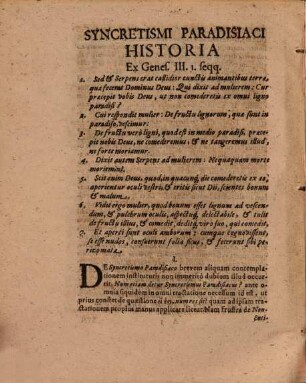 SYNCRETISMI PARADISIACI
HISTORIA
Ex Genes. III. 1. seqq.
1. Sed & Serpens erat callidior cunctis animantibus terra,
qua fecerat Dominus Deus: Qui dixit ad mulierem: Cur
præcepit vobis Deus, ut non comederetis ex omni ligno
paradisi?
2. Cui respondit mulier: De fructu lignorum, quæ sunt in
paradiso, vescimur.
3. De fructu verò ligni, quod est in medio paradisi, præce-
pit nobis Deus, ne comederemus: & ne tangeremus illud,
ne forte moriamur.
4. Dixit autem Serpens ad mulierem: Nequaquam morte
moriemini.
5. Scit enim Deus, quod, in quacunq; die comederetis ex eo,
aperientur oculi vestri, & eritis sicut Dii, scientes bonum
& malum.
6. Vidit ergo mulier, quod bonum esset lignum ad vescen-
dum, & pulchrum oculis, aspectuq; delectabile, & tulit
de fructu illius, & comedit, deditq; viro suo, qui comedit.
7. Et aperti sunt oculi amborum: cumque cognovissent,
se esse nudos, consuerunt folia ficus, & fecerunt sibi peri-
zomata.
I.
DE Syncretismo Paradisiaco brevem aliquam contempla-
tionem instituturis non immeritò dubium illud occur-
rit, Num etiam detur Syncretismus Paradisiacus? ante o-
mnia siquidem in omni tractatione necessum id est, ut
prius constet de quæstione quam ad ipsam tra-
ctationem propius manus applicare liceat. Nam frustra de Non-